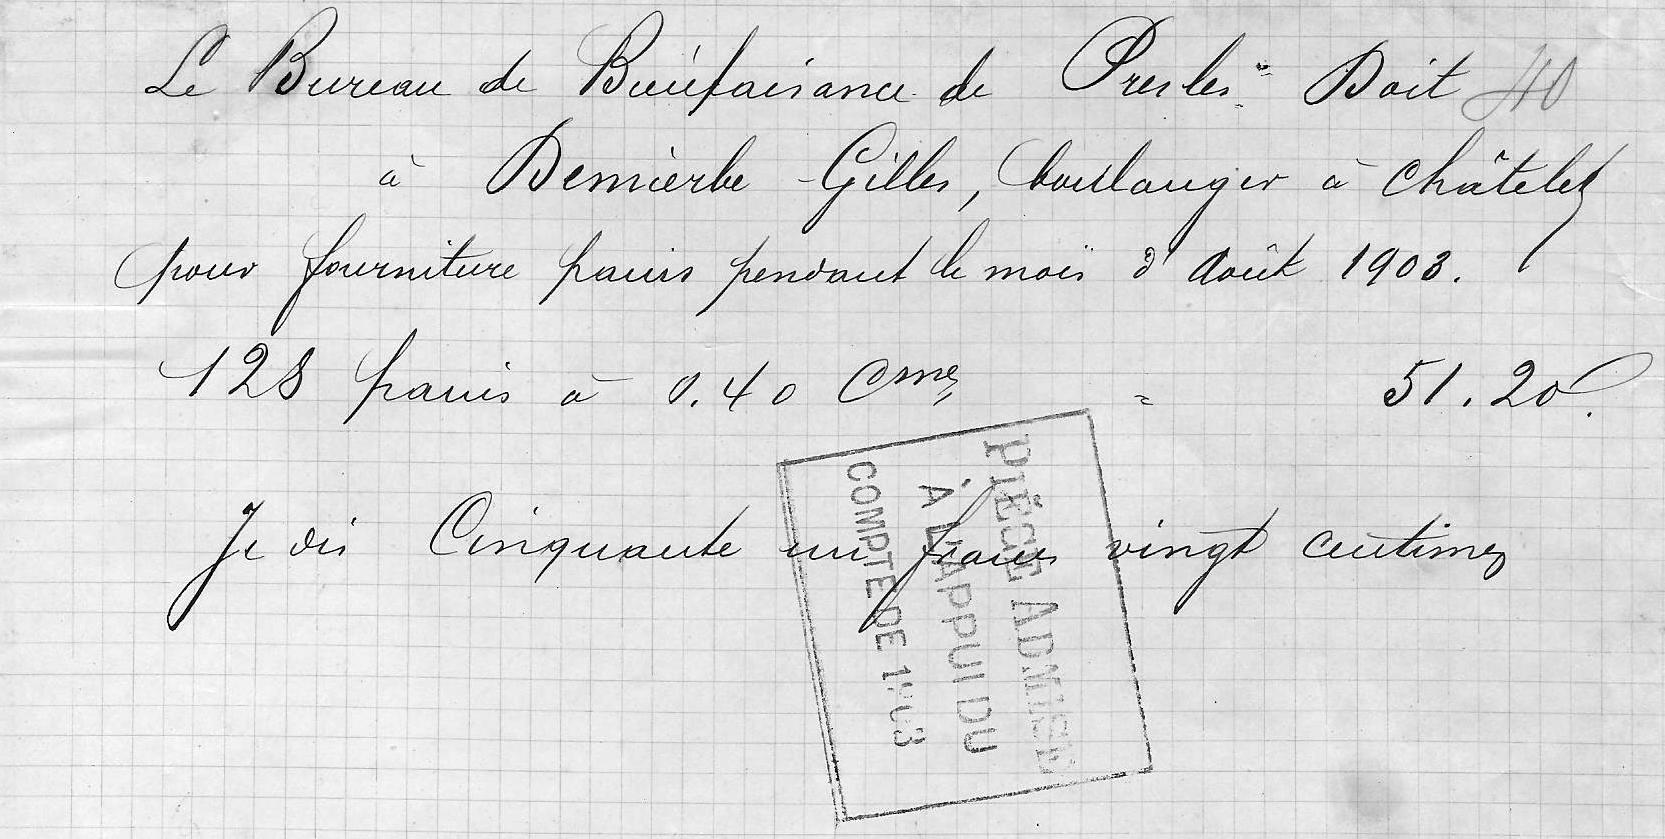 Le Bureau de Bienfaisance de Presles Doit 40
à Demierbe-Gilles, boulanger à Châtelet
pour fourniture pains pendant le mois d'Août 1903.
128 pains à 0.40 Cmes = 51.20.
Je dis Cinquante un francs vingt centimes
PIÈCE ADMISE
À L'APPUI DU
COMPTE DE 1903